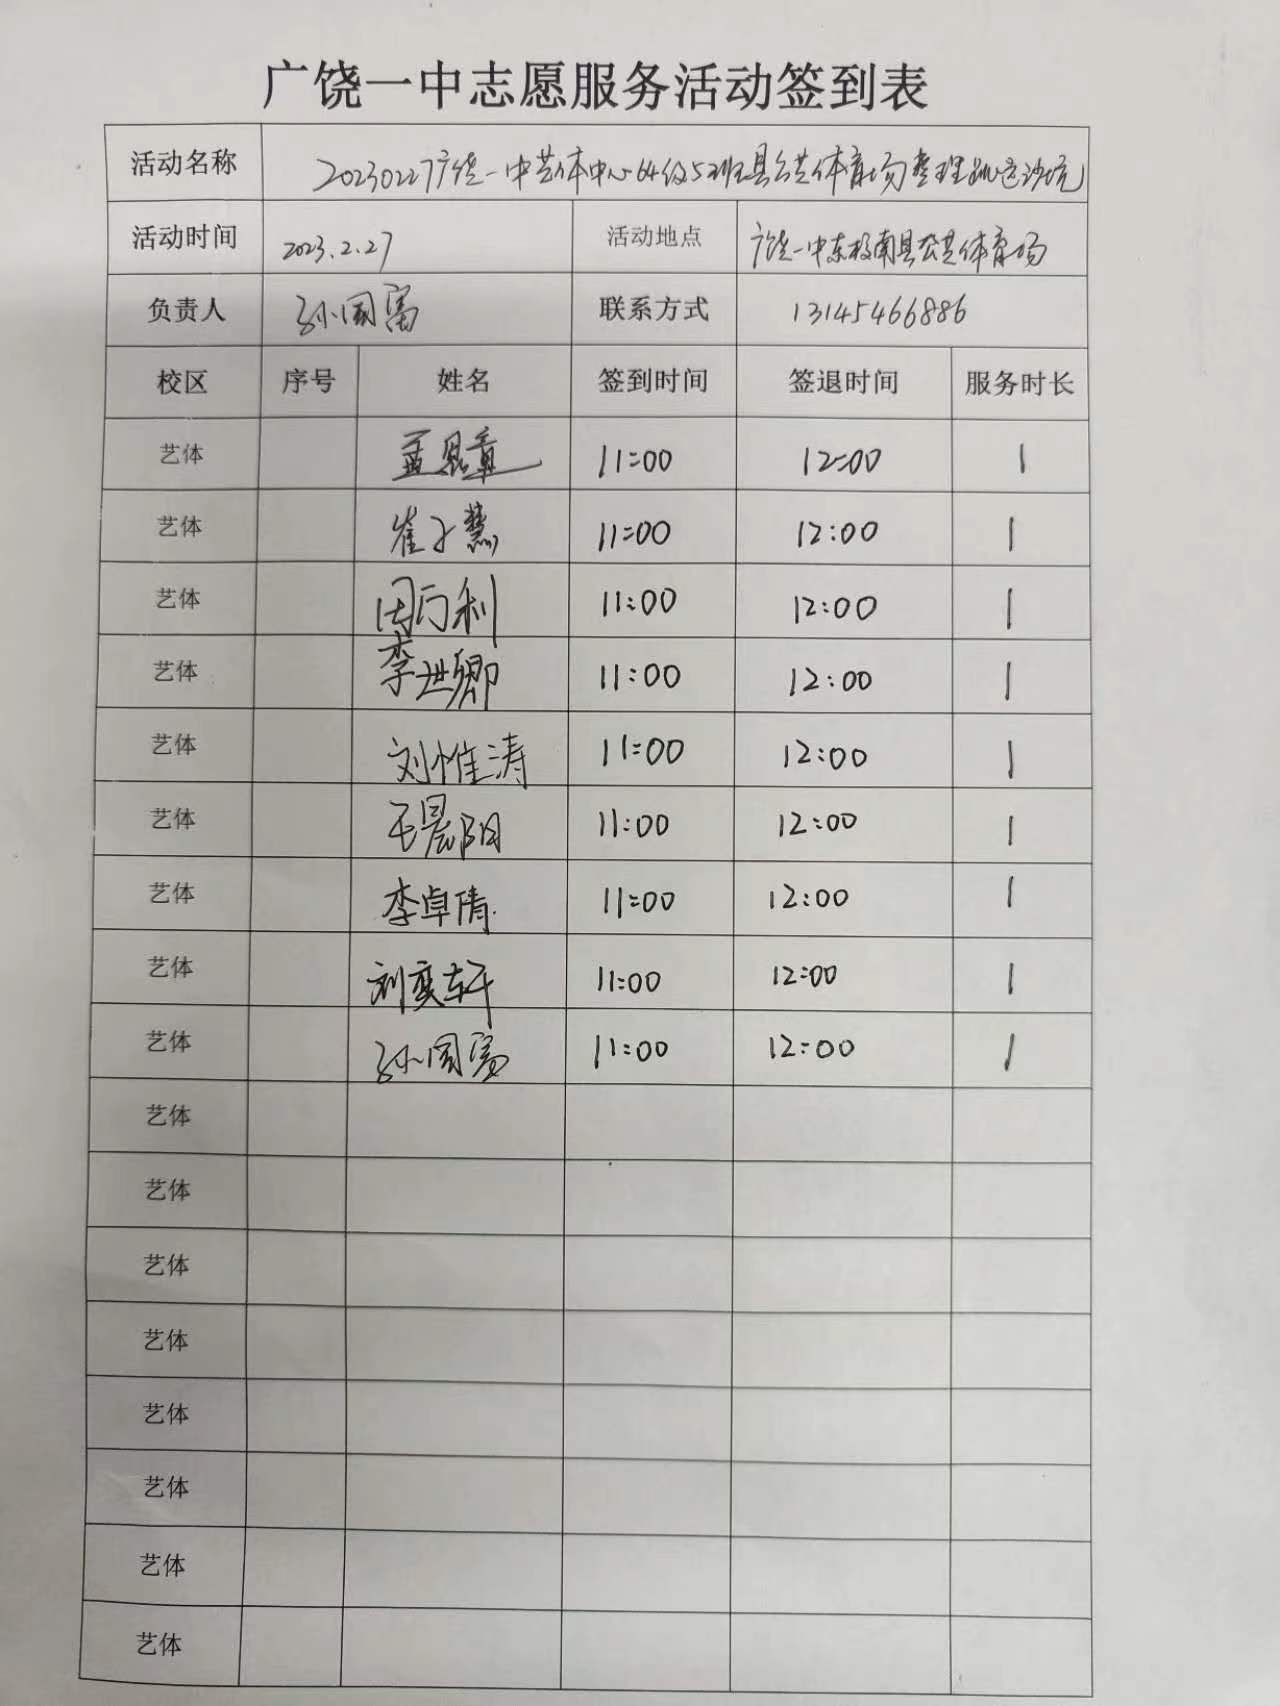 广饶一中志愿服务活动签到表
活动名称 20230227广饶一中艺体中心64级52班县公共体育场整理跳远沙坑
活动时间 2023.2.27 活动地点 广饶一中东校南县公共体育场
负责人 孙国富 联系方式 13145466886
校区 序号 姓名 签到时间 签退时间 服务时长
艺体 孟昭章 11:00 12:00 1
艺体 崔子慧 11:00 12:00 1
艺体 11:00 12:00 1
艺体 李世卿 11:00 12:00 1
艺体 刘惟涛 11:00 12:00 1
艺体 王晨阳 11:00 12:00 1
艺体 李卓倩 11:00 12:00 1
艺体 刘奕轩 11:00 12:00 1
艺体 孙国富 11:00 12:00 1
艺体
艺体
艺体
艺体
艺体
艺体
艺体
艺体